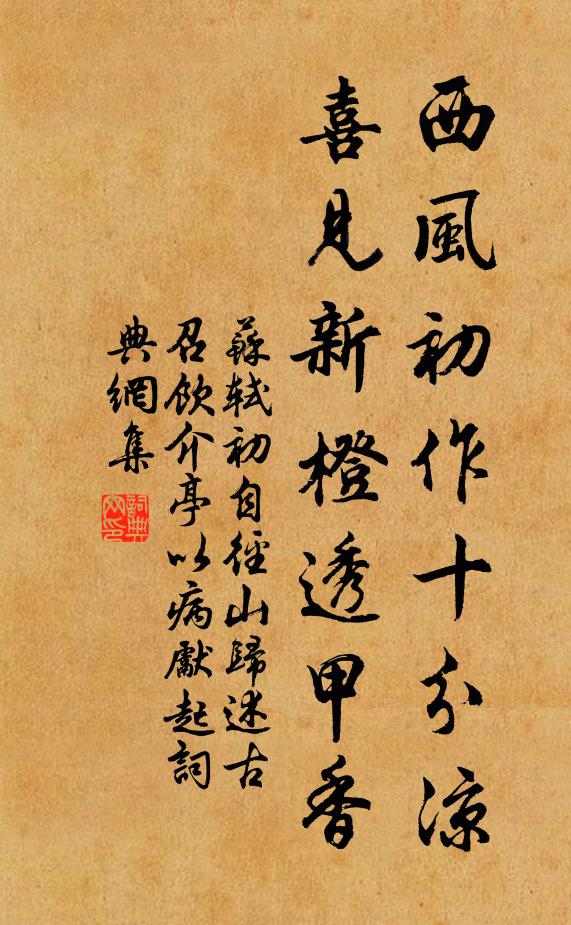 西風初作十分涼
喜見新橙透甲香
蘇軾初自徑山歸述古
召飲介亭以病獻起詞
典網集
詞典网印